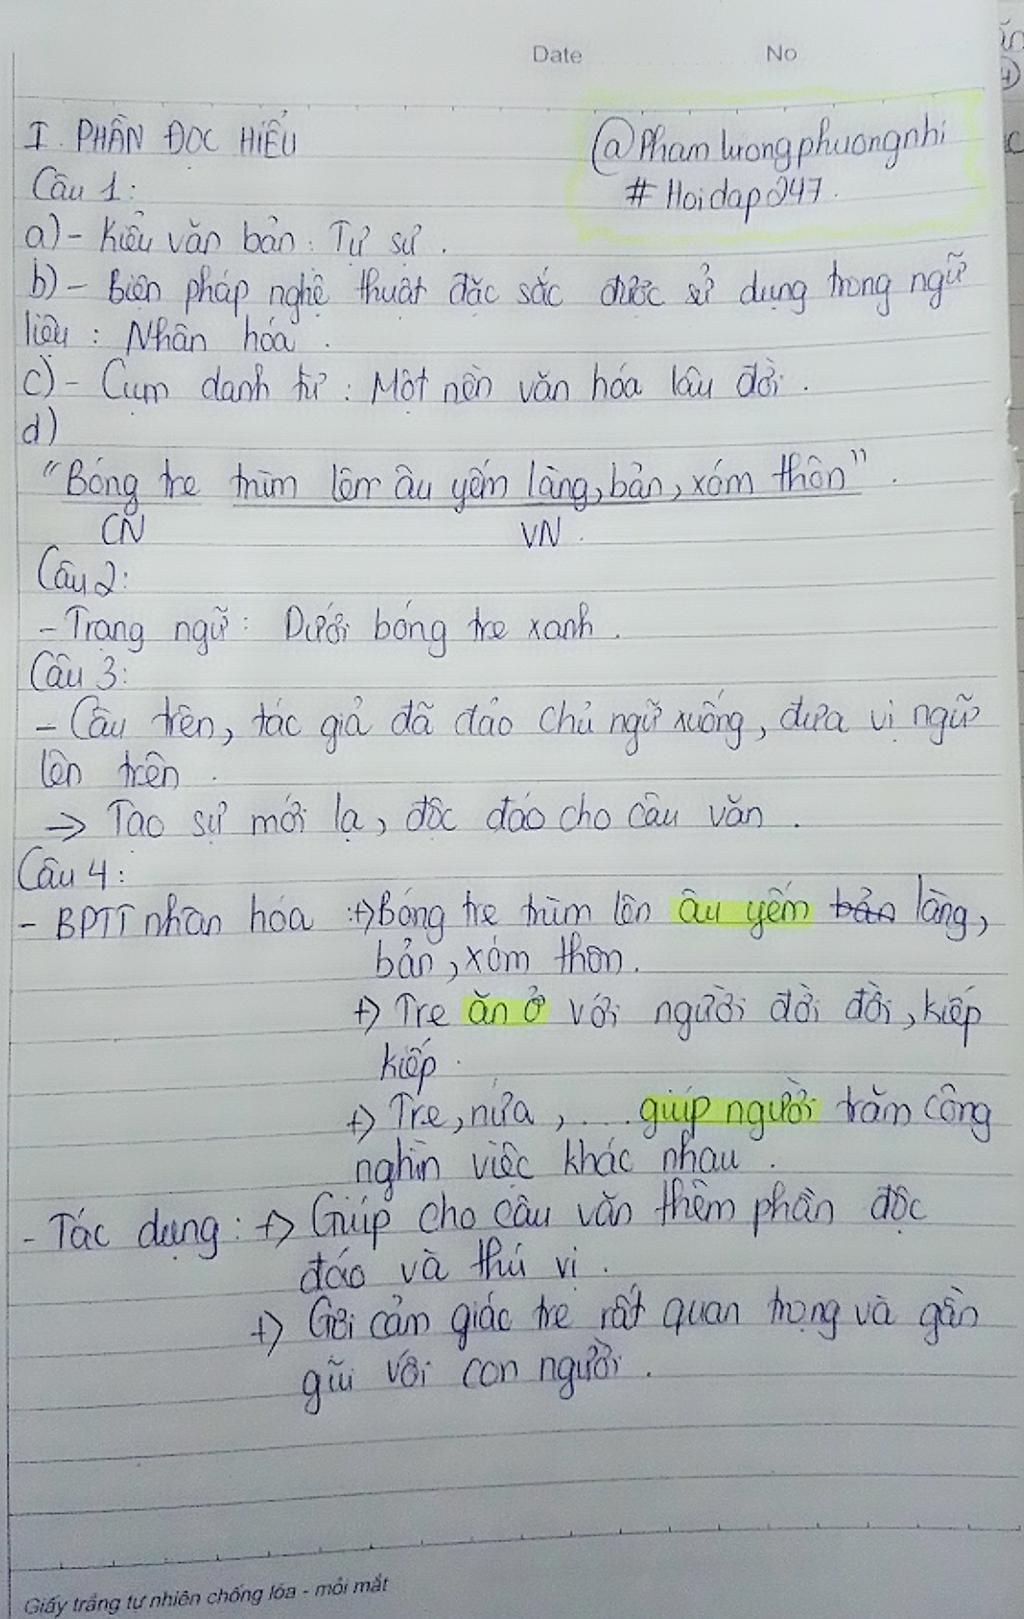 Date No
I. PHẦN ĐỌC HIỂU
@Phamluongphuongnhi
#Hoidap247.
Câu 1:
a) - Kiểu văn bản: Tự sự.
b) - Biện pháp nghệ thuật đặc sắc được sử dụng trong ngữ
liệu: Nhân hóa.
c) - Cụm danh từ: Một nền văn hóa lâu đời.
d)
"Bóng tre trùm lên âu yếm làng, bản, xóm thôn".
CN VN.
Câu 2:
- Trạng ngữ: Dưới bóng tre xanh.
Câu 3:
- Câu trên, tác giả đã đảo chủ ngữ xuống, đưa vị ngữ
lên trên.
-> Tạo sự mới lạ, độc đáo cho câu văn.
Câu 4:
- BPTT nhân hóa :+) Bóng tre trùm lên âu yếm bản làng,
bản, xóm thôn.
+) Tre ăn ở với người đời đời, kiếp
kiếp.
+) Tre, nứa, .... giúp người trăm công
nghìn việc khác nhau.
- Tác dụng: +) Giúp cho câu văn thêm phần độc
đáo và thú vị.
+) Gợi cảm giác tre rất quan trọng và gần
gũi với con người.
Giấy trắng tự nhiên chống lóa - mỏi mắt